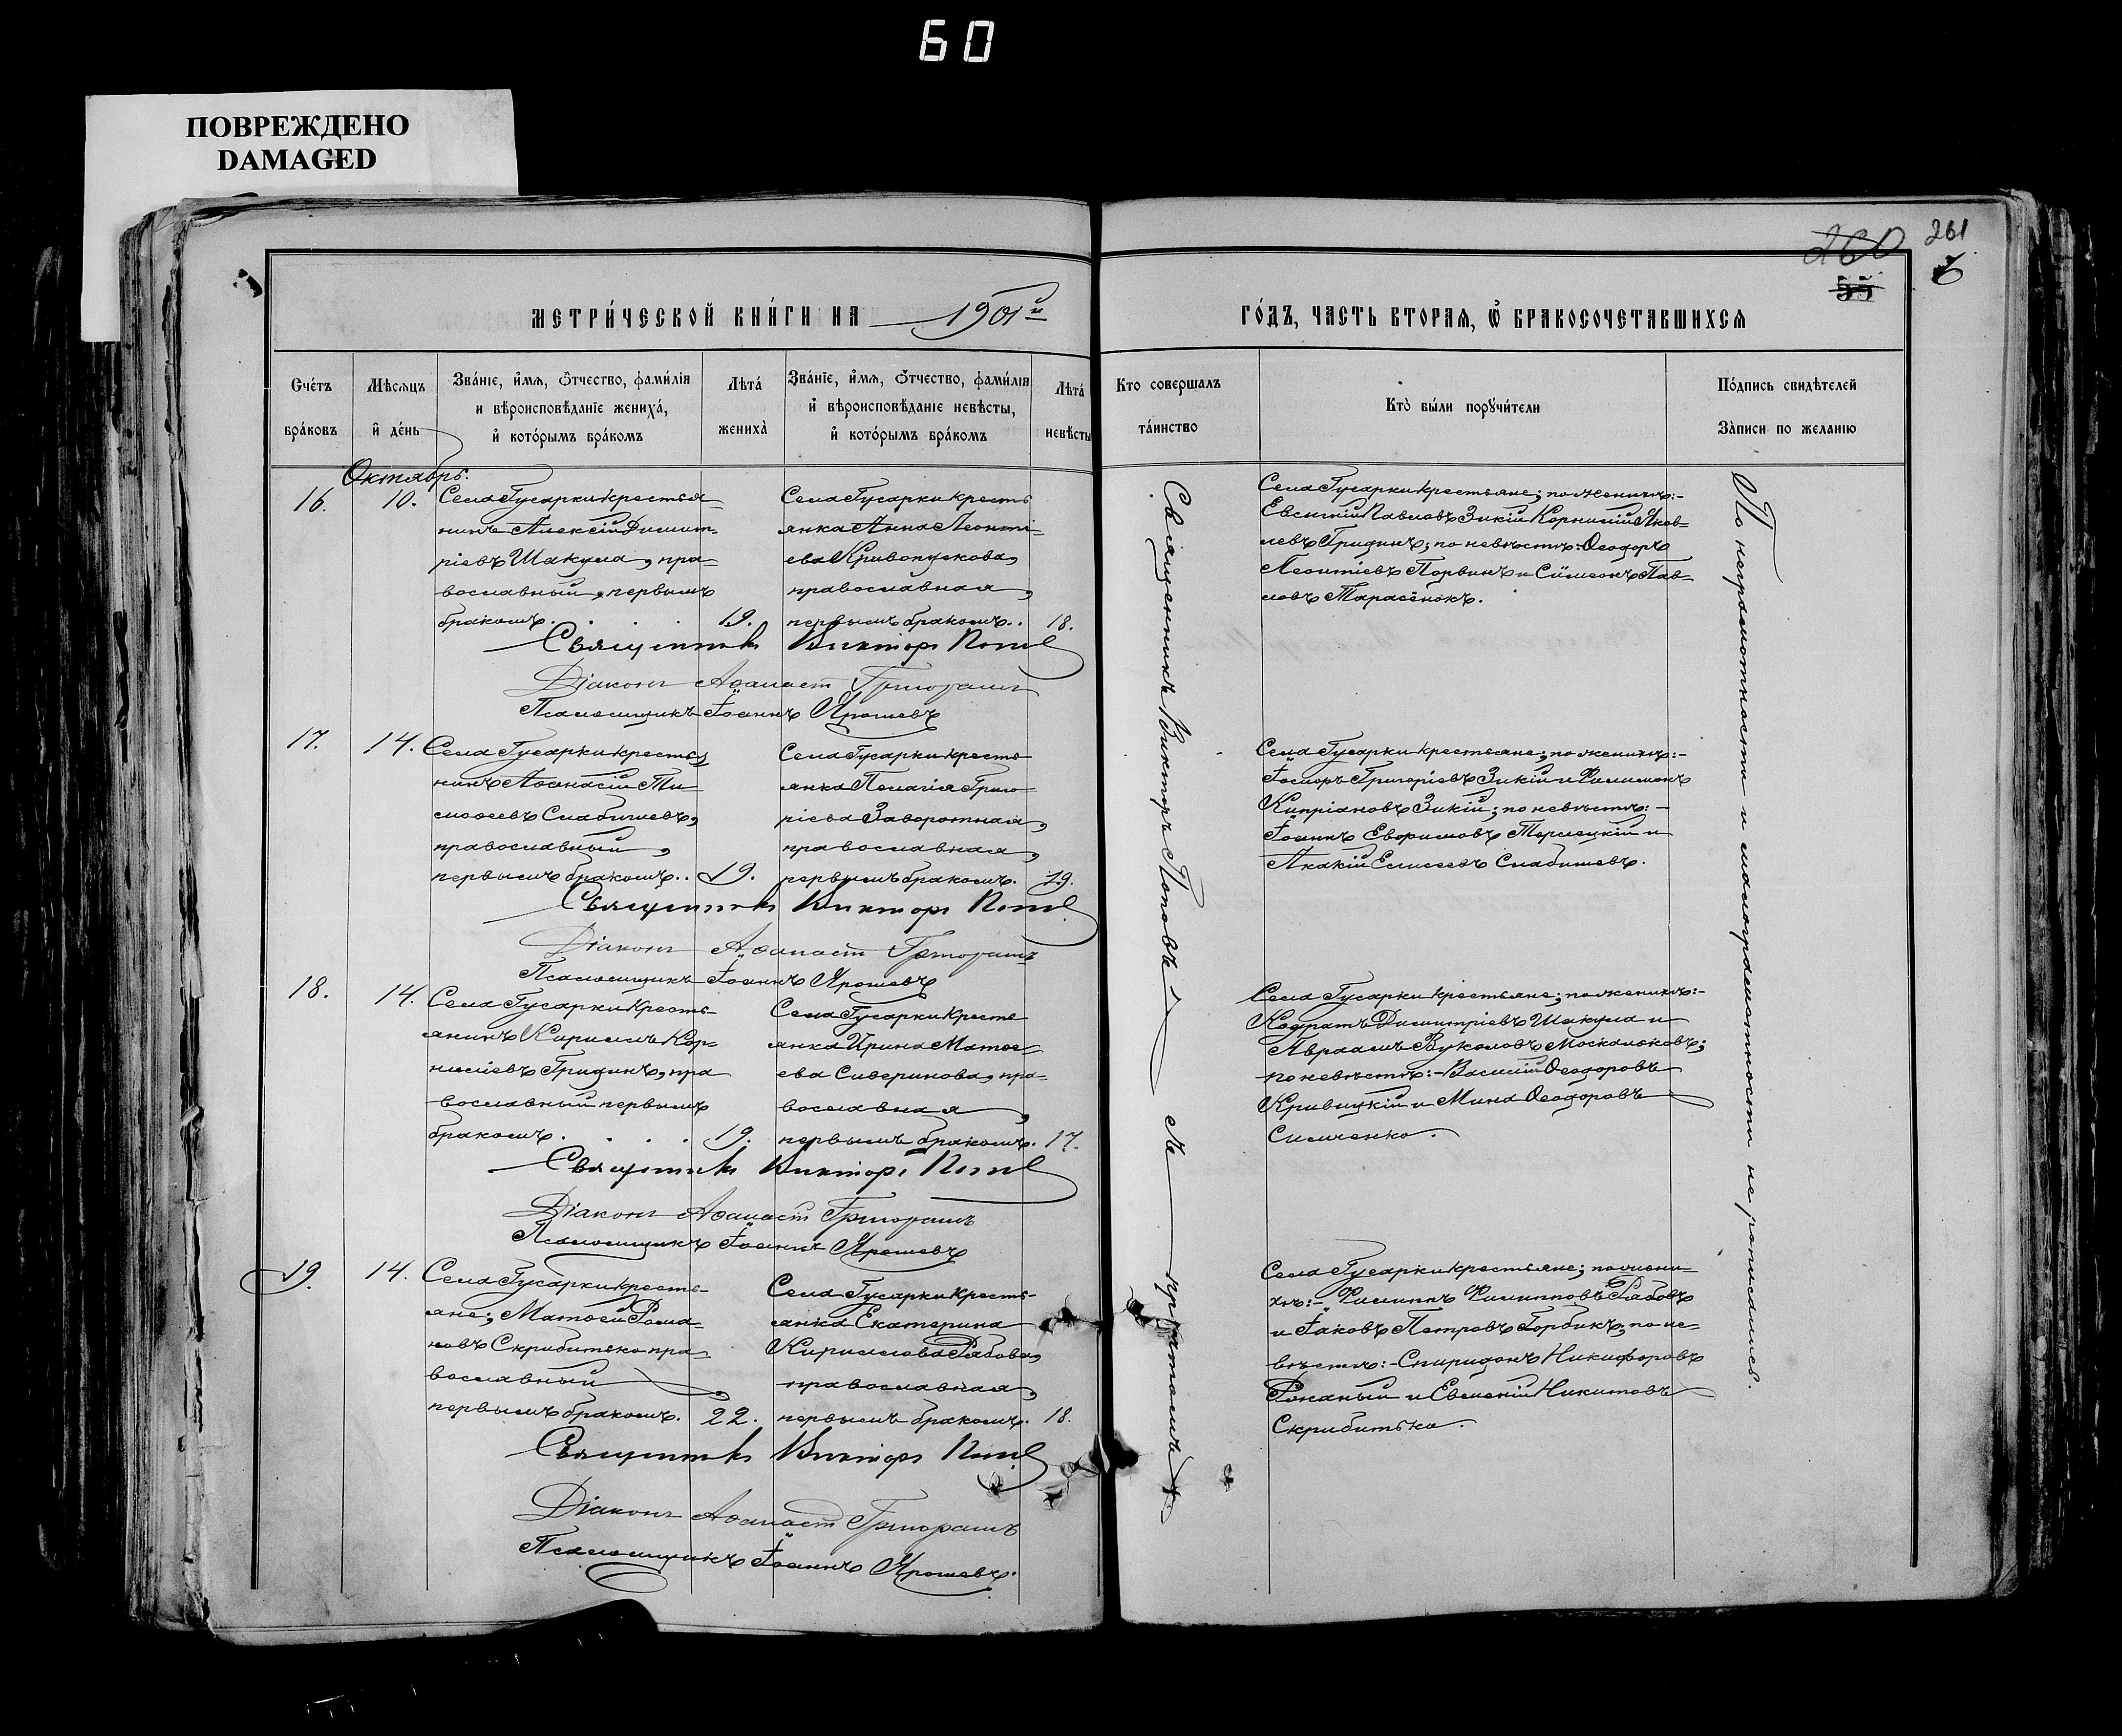 60
ПОВРЕЖДЕНО
DAMAGED
260 261
55 6
МЕТРИ́ЧЕСКОЙ КНИ́ГИ НА 1901й ГО́ДЪ, ЧАСТЬ ВТОРАЯ, Ѡ҆ БРАКОСОЧЕТАВШИХСЯ
Сче́тъ бра́ковъ
Мѣ́сѧцъ и҆ де́нь
Зва́нїе, и҆́мѧ, ѻ҆́тчество, фами́лїя
и вѣроисповѣ́данїе жениха́,
и҆ кото́рымъ бра́комъ
Лѣта̀ жениха̀
Зва́нїе, и҆́мѧ, ѻ҆́тчество, фами́лїя
и҆ вѣроисповѣ́данїе невѣ́сты,
и҆ кото́рымъ бра́комъ
Лѣта̀ невѣ́сты
Кто совершалъ
та́инство
Кто̀ бы́ли порꙋчи́тели
По́дпись свидѣ́телей
За̀писи по желанїю
Октябрь.
16. 10.
Села Гусарки крестья-
нинъ Алексій Димит-
ріевъ Шакула, пра-
вославный, первымъ
бракомъ. . . . 19.
Села Гусарки кресть
янка Анна Леонті-
ева Кривопускова,
православная,
первымъ бракомъ. . 18.
Села Гусарки крестьяне; по женихѣ:-
Евсигній Павловъ Зикій Корнилій Яков-
левъ Гридинъ; по невѣстѣ: Ѳеодоръ
Леонтіевъ Порвинъ и Сѵмеонъ Пав-
ловъ Тарасёнокъ.
Священникъ Викторъ Поповъ
Діаконъ Аѳанасій Григорашъ
Псаломщикъ Іоаннъ Ярошевъ
17. 14.
Села Гусарки крестья
нинъ Аѳанасій Ти
моѳеевъ Слабишевъ,
православный,
первымъ бракомъ. . 19.
Села Гусарки кресть
янка Пелагія Григо
ріева Заворотная,
православная,
первымъ бракомъ. 19.
Села Гусарки крестьяне; по женихѣ:-
Іосифъ Григоріевъ Зикій и Филимонъ
Кипріановъ Зикій; по невѣстѣ:-
Іоаннъ Евфимовъ Терлецкій и
Акакій Елисеевъ Слабишевъ.
Священникъ Викторъ Поповъ
Діаконъ Аѳанасій Григорашъ
Псаломщикъ Іоаннъ Ярошевъ
18. 14.
Села Гусарки кресть-
янинъ Кириллъ Кор-
ниліевъ Гридинъ, пра
вославный первымъ
бракомъ. . . . . 19.
Села Гусарки кресть
янка Ирина Матѳе-
ева Сиверинова, пра-
вославная,
первымъ бракомъ. 17.
Села Гусарки крестьяне; по женихѣ:-
Кодратъ Димитріевъ Шакула и
Авраамъ Вуколовъ Москальковъ;
по невѣстѣ:- Василій Ѳеодоровъ
Кривицкій и Мина Ѳеодоровъ
Симченко.
Священникъ Викторъ Поповъ
Діаконъ Аѳанасій Григорашъ
Псаломщикъ Іоаннъ Ярошевъ
19. 14.
Села Гусарки кресть-
яне; Матѳей Рома-
новъ Скрибитько пра
вославный,
первымъ бракомъ. 22.
Села Гусарки кресть-
янка Екатерина
Кириллова Рябова,
православная,
первымъ бракомъ. 18.
Села Гусарки крестьяне; по жени-
хѣ:- Филиппъ Филипповъ Рябовъ
и Іаковъ Петровъ Горбикъ; по не-
вѣстѣ:- Спиридонъ Никифоровъ
Ржаный и Евмений Никитовъ
Скрибитько.
Священникъ Викторъ Поповъ
Діаконъ Аѳанасій Григорашъ
Псаломщикъ Іоаннъ Ярошевъ.
Священникъ Викторъ Поповъ съ причтомъ
По неграмотности и малограмотности не росписались.